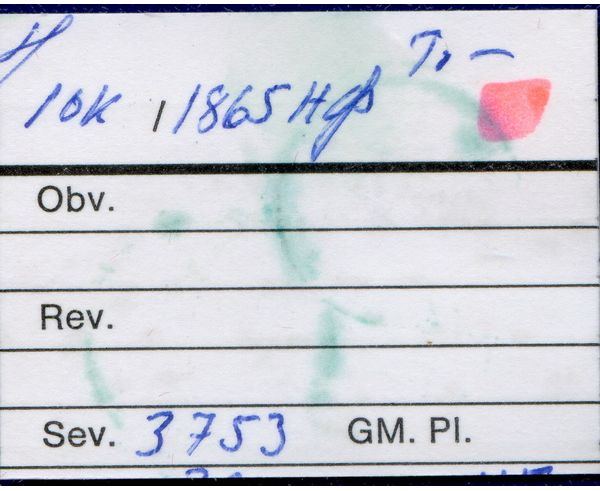 T, —
10K 1865 H
Obv.
Rev.
Sev. 3753 GM. Pl.